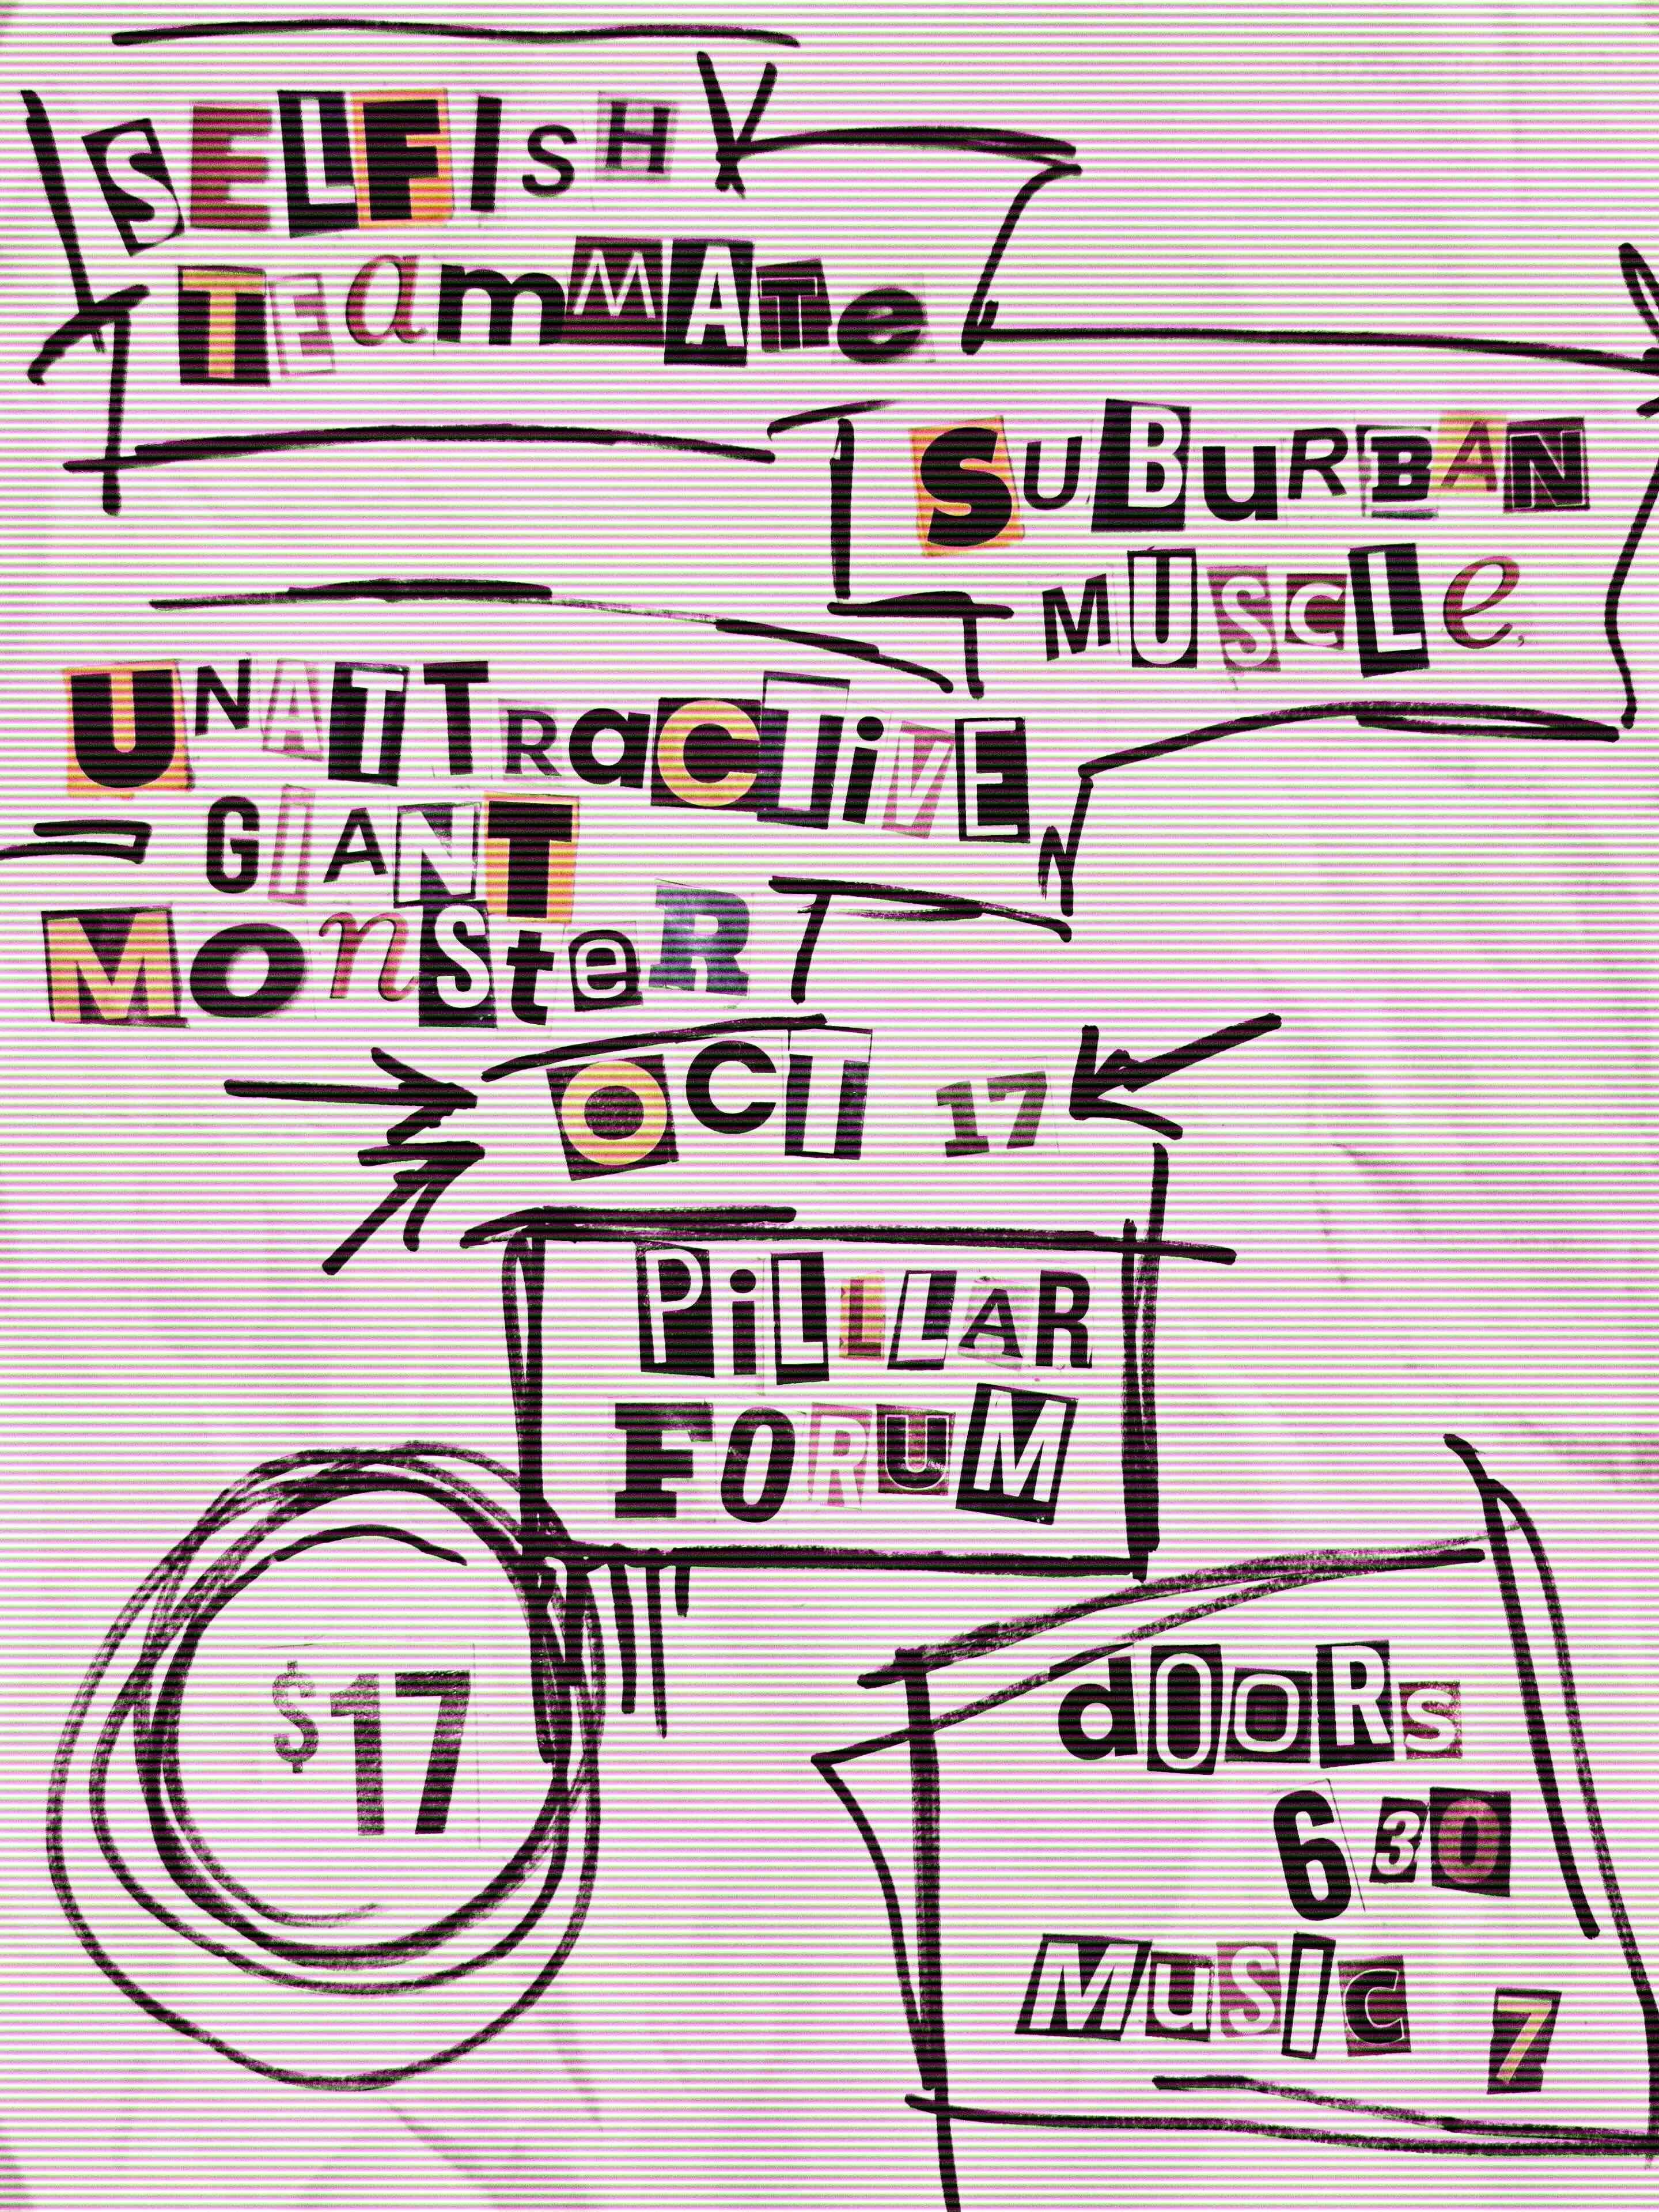 SELFISH
TEamMATe
SUBuRBAN
MUSCLe
UNATTRaCTiVE
GIANT
MOnSteR
OCT 17
PiLLLAR
FORUM
$17
dOORs
630
MuSIC 7